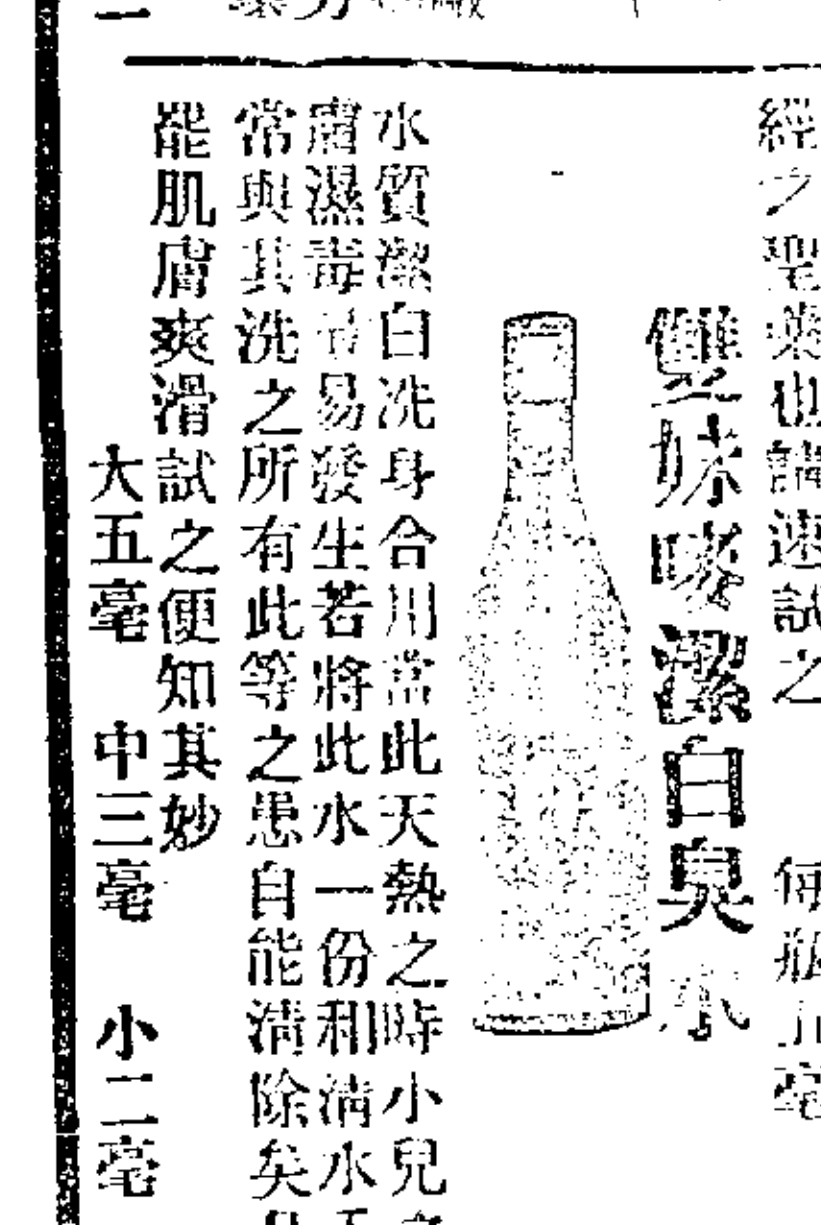 經之聖藥也請速試之 每瓶九毫
雙妹嘜潔白泉水
水質潔白洗身合用當此天熱之時小兒
膚濕毒最易發生若將此水一份和清水
常與其洗之所有此等之患自能清除矣
能肌膚爽滑試之便知其妙
大五毫 中三毫 小二毫